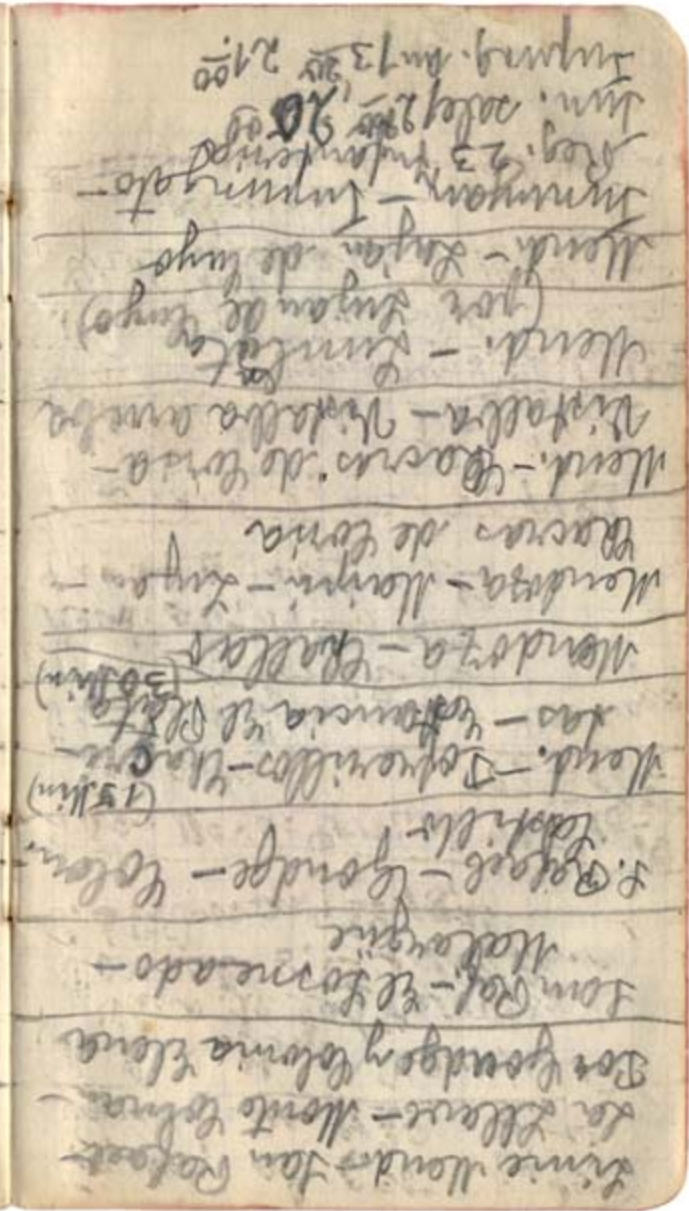 Línie Mend. San Rafael -
La Llave - Monte Comán
Por Goudge y Colonia Elena
San Raf. - El Sosneado -
Malargüe
S. Rafael - Goudge - Colon.
Castillo
(15 Min)
Mend. - Potrerillos - Chacri-
tas - Estancia El Plata
(30 Min)
Mendoza - Challao
Mendoza - Maipú - Luján -
Chacras de Coria
Mend. - Chacras de Coria -
Vistalba - Vistalba arriba
Mend. - Lunlunta
(por Luján de Cuyo)
Mend. - Luján de Cuyo
Tunuyán - Tupungato -
Reg. 23 Infantería
Tun. sale
Tupung. 21.00